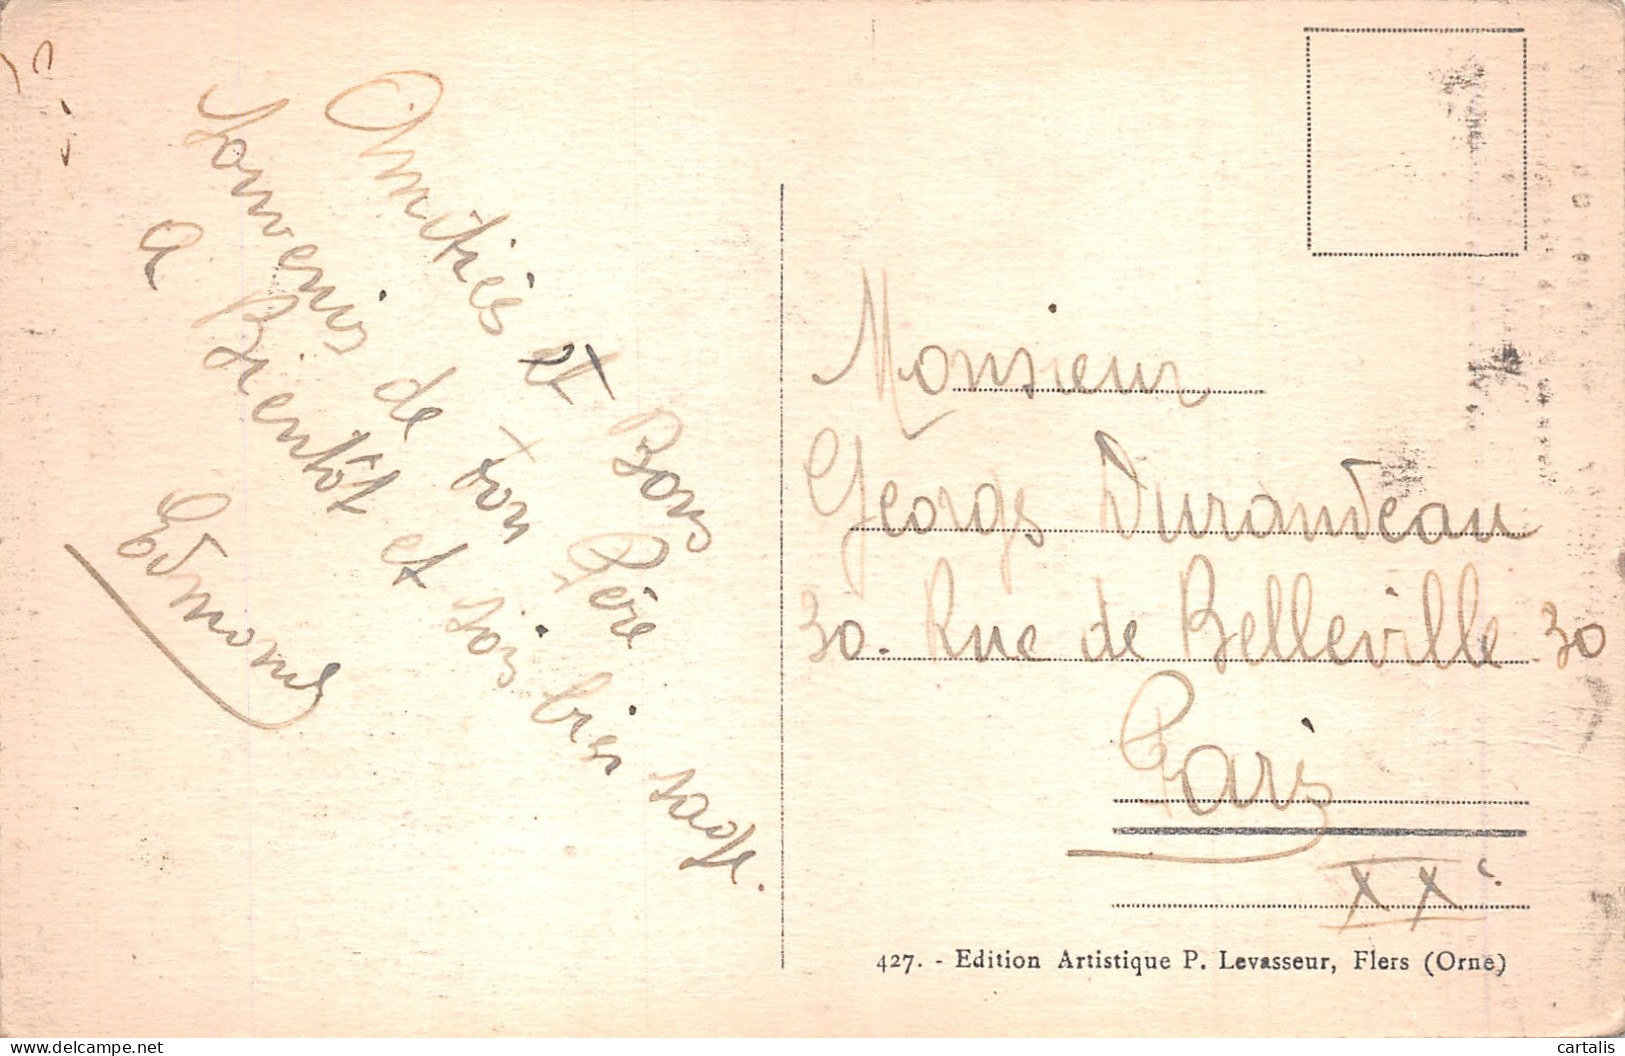 Amitiés et Bons
Souvenirs de ton Père
a Bientôt et sois bien sage.
Edmond
Monsieur
Georges Durandeau
30. Rue de Belleville 30
Paris
XXe
427. - Edition Artistique P. Levasseur, Flers (Orne)
delcampe.net
cartalis